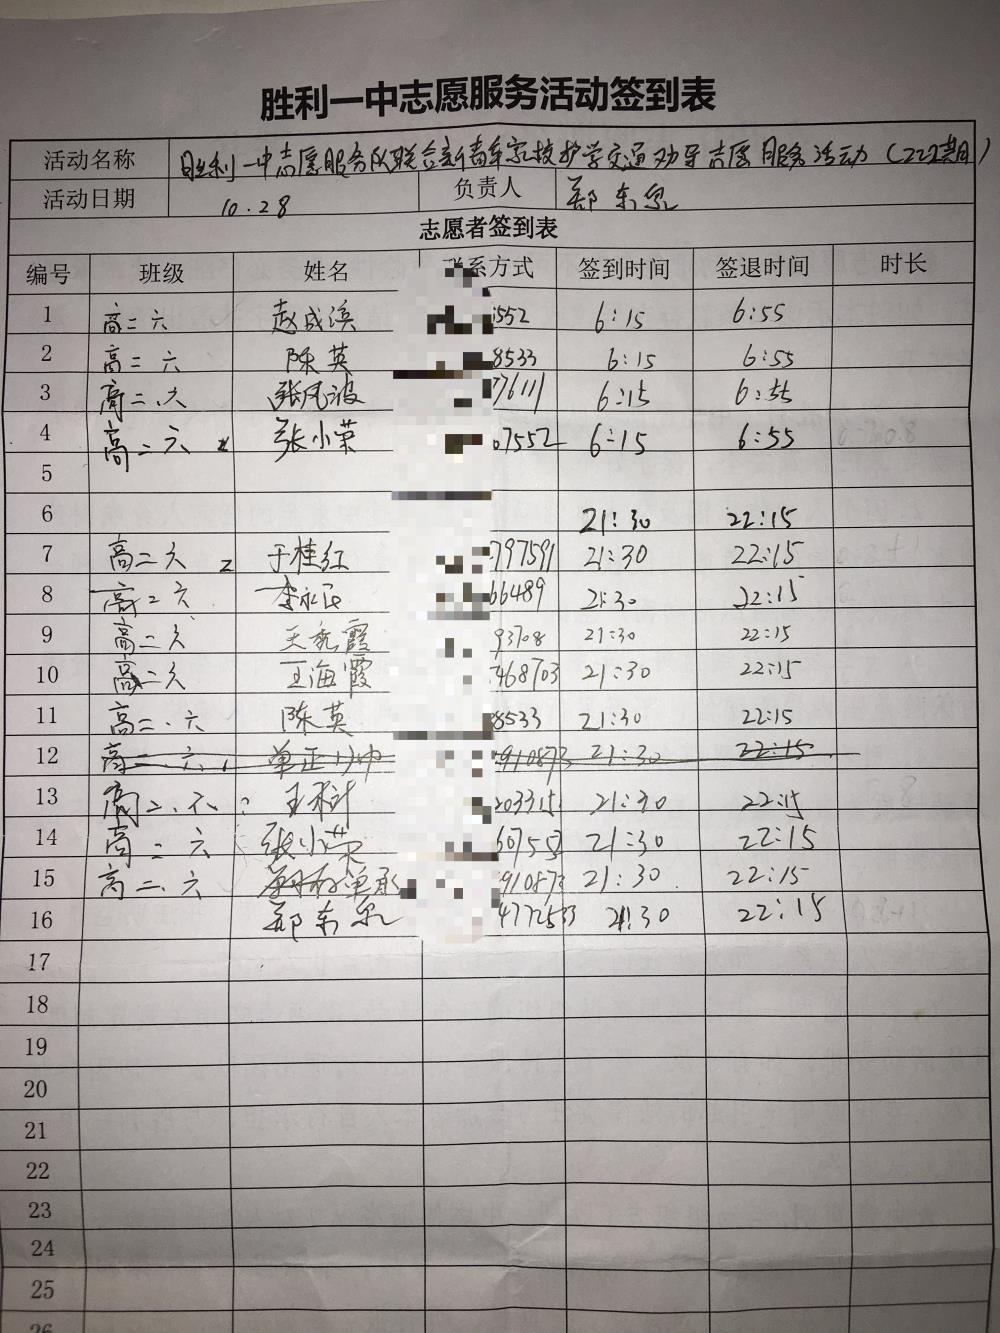 胜利一中志愿服务活动签到表
活动名称 胜利一中志愿服务队联合新青年家校护学交通劝导志愿服务活动(222期)
活动日期 10.28 负责人 郑东泉
志愿者签到表
编号 班级 姓名 联系方式 签到时间 签退时间 时长
1 高二六 赵成滨 552 6:15 6:55
2 高二六 陈英 8533 6:15 6:55
3 高二.六 张凤波 76111 6:15 6:55
4 高二六 张小荣 07552 6:15 6:55
5
6 21:30 22:15
7 高二六 于桂红 797591 21:30 22:15
8 高二六 李永民 66489 21:30 22:15
9 高二六 霞 93708 21:30 22:15
10 高二六 王海霞 468703 21:30 22:15
11 高二.六 陈英 8533 21:30 22:15
12 高二.六 单正 910873 21:30 22:15
13 高二.六 王 203315 21:30 22:15
14 高二六 张小荣 60755 21:30 22:15
15 高二.六 单承 910873 21:30 22:15
16 郑东泉 477253 21:30 22:15
17
18
19
20
21
22
23
24
25
26